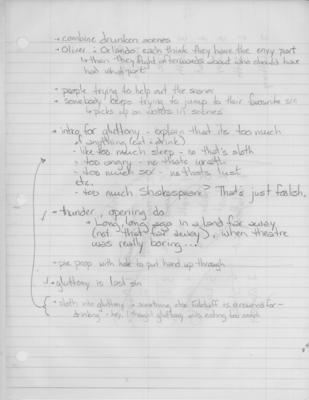 → combine drunken scenes
→ Oliver & Orlando each think they have the envy part
↳ then they fight afterwards about who should have
had what part
→ people trying to help out the scenes
→ somebody keeps trying to jump to their favourite sin
↳ picks up on in scenes
→ intro for gluttony - explain that its too much
of anything (eat & drink)
- like too much sleep - no that's sloth
- too angry - no thats wrath
- too much sex - no thats lust
etc.
- too much Shakespeare? That's just foolish.
→ thunder, opening do
→ Long, long ago in a land far away
(not that far away), when theatre
was really boring...
→ pie prop with hole to put hand up through
→ gluttony is last sin
→ sloth into gluttony → something else Falstaff is known for -
drinking - hey, I thought gluttony was eating too much